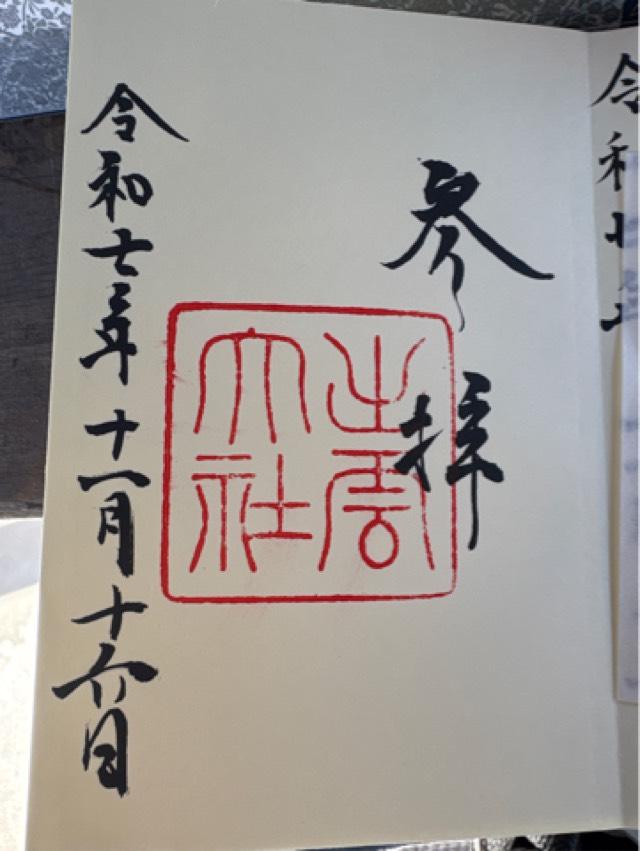 令和七
参拝
出雲
大社
令和七年十一月十六日